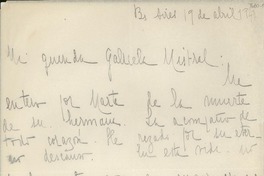 Bs Aires 19 de abril
Mi querida Gabriela Mistral:
Me
entero por Marta de la muerte
de su hermana. La acompaño de
todo corazón. He rezado por su eter-
no descanso. esta vida. no